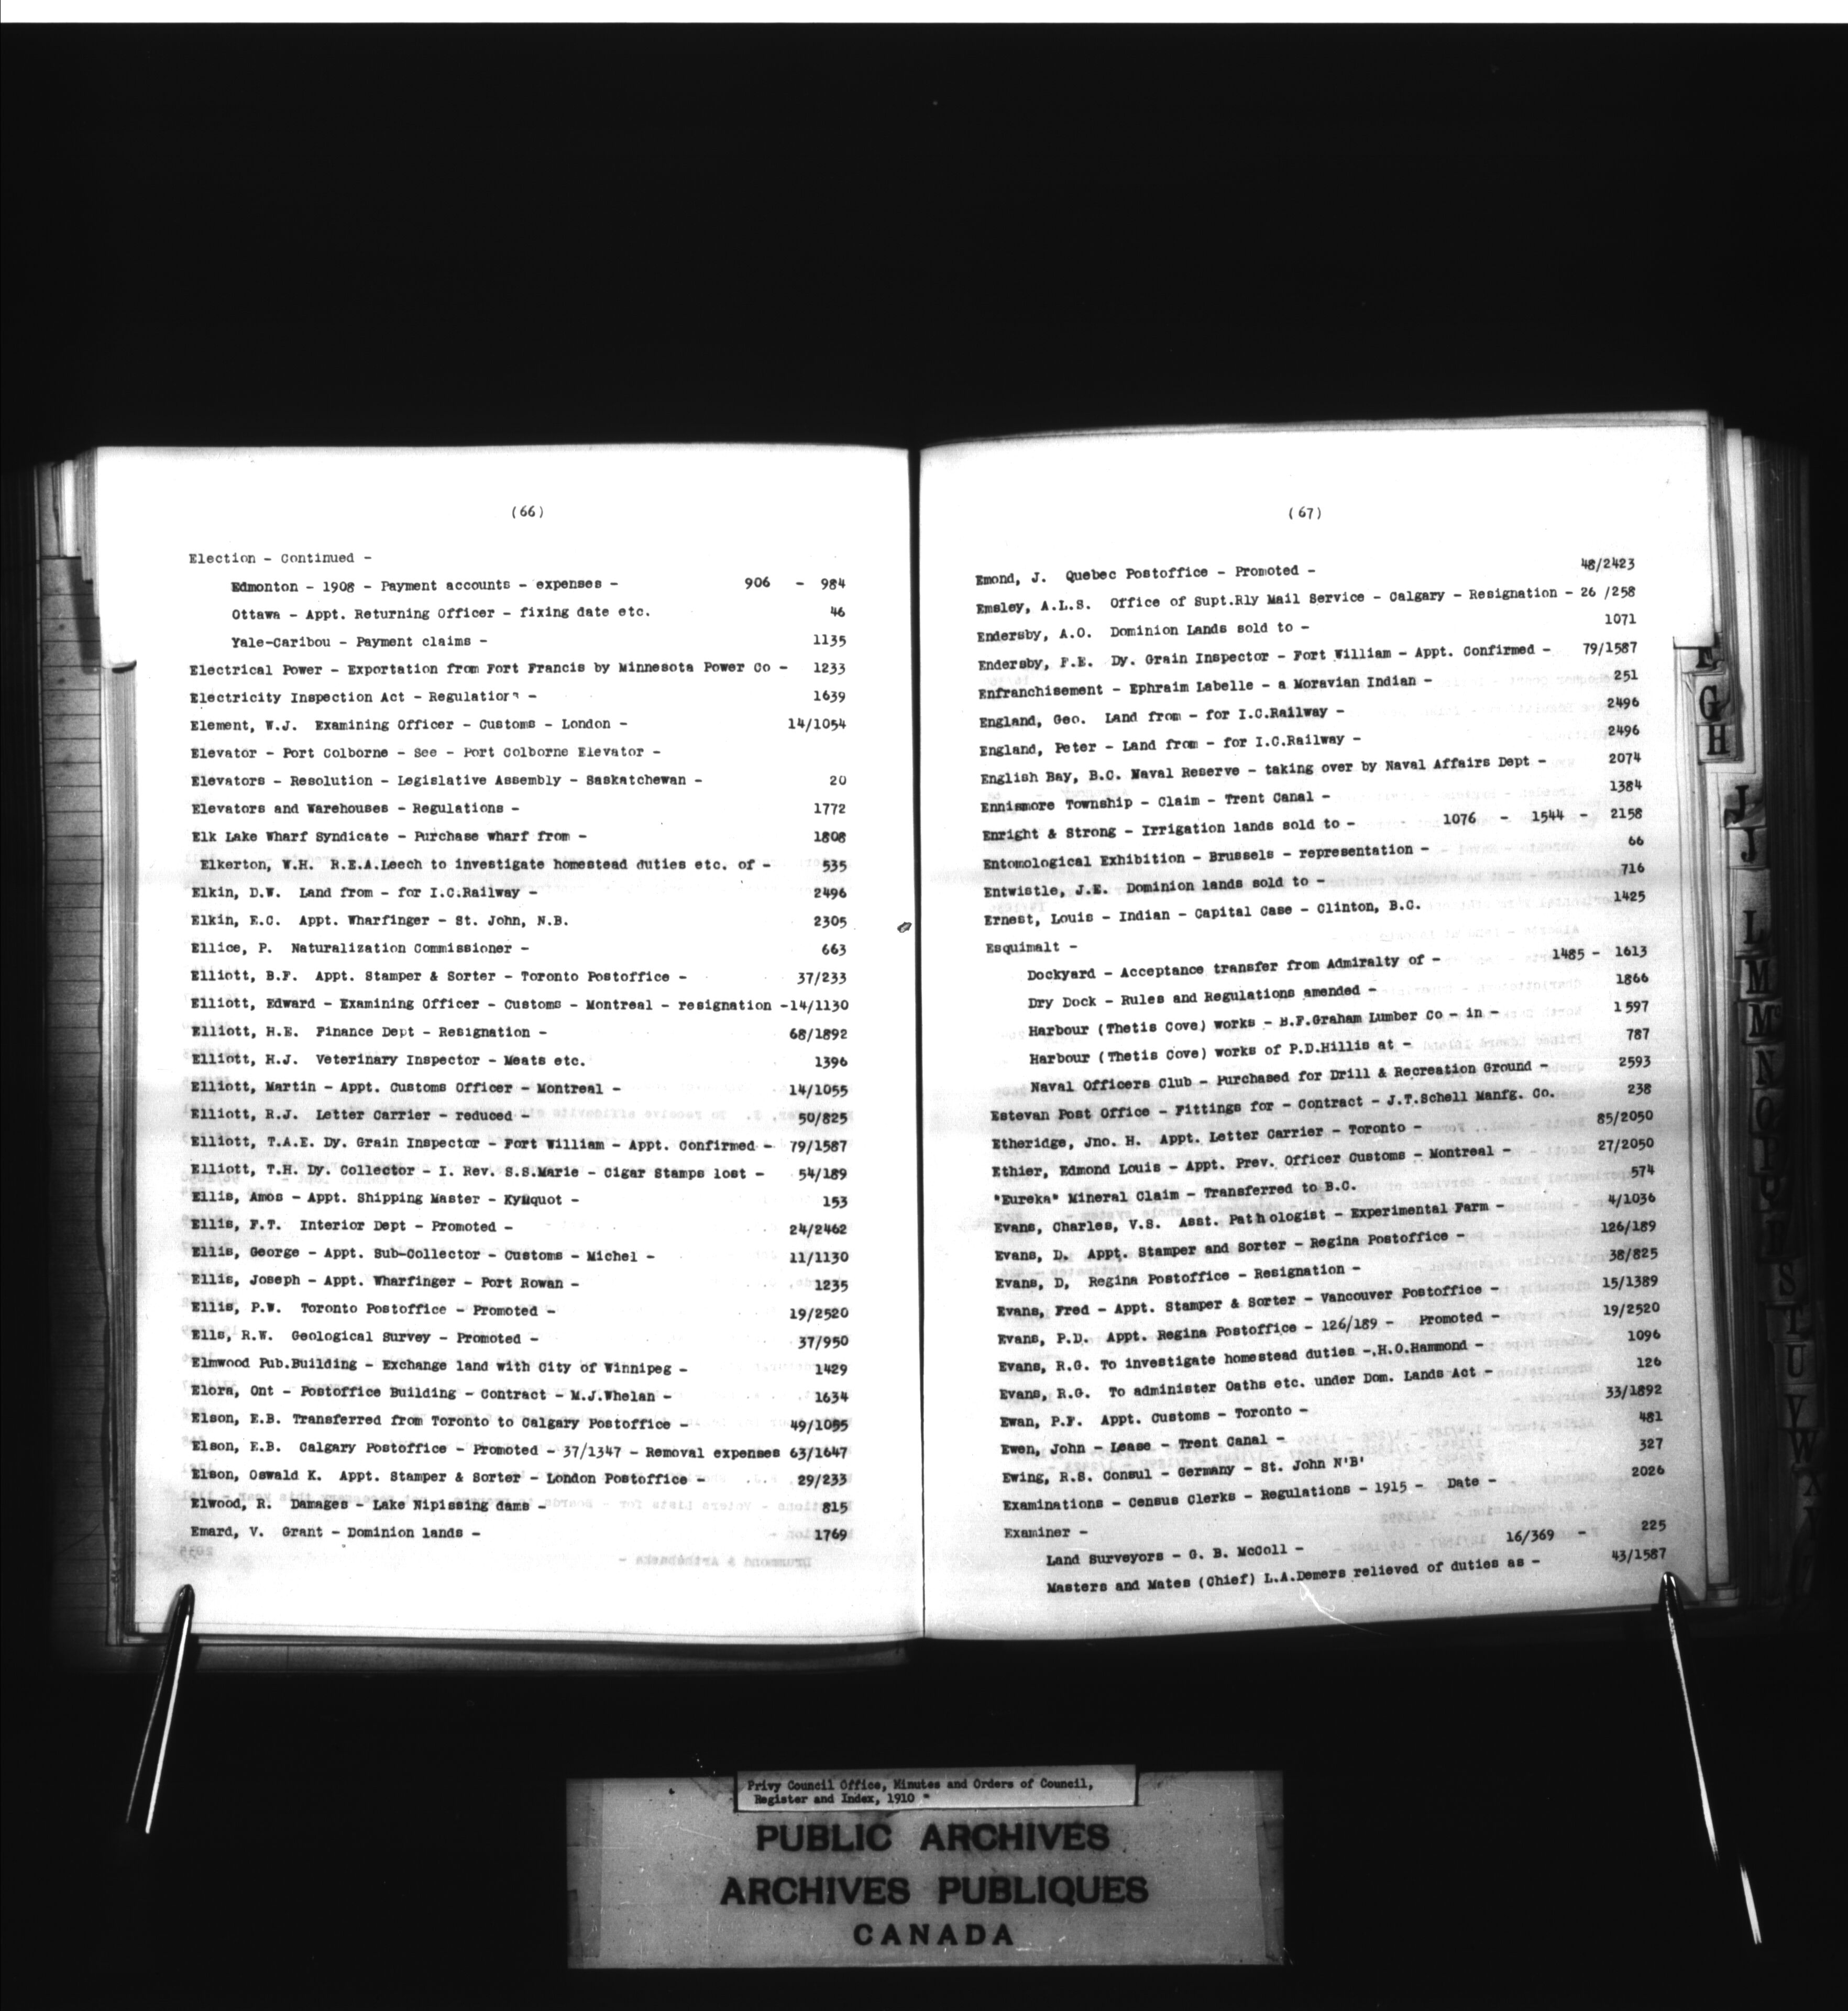 (66)
Election - Continued -
Edmonton - 1908 - Payment accounts - expenses - 906 - 984
Ottawa - Appt. Returning Officer - fixing date etc. 46
Yale-Caribou - Payment claims - 1135
Electrical Power - Exportation from Fort Francis by Minnesota Power Co - 1233
Electricity Inspection Act - Regulations - 1639
Element, W.J. Examining Officer - Customs - London - 14/1054
Elevator - Port Colborne - See - Port Colborne Elevator -
Elevators - Resolution - Legislative Assembly - Saskatchewan - 20
Elevators and Warehouses - Regulations - 1772
Elk Lake Wharf Syndicate - Purchase wharf from - 1808
Elkerton, W.H. R.E.A.Leech to investigate homestead duties etc. of - 535
Elkin, D.W. Land from - for I.C.Railway - 2496
Elkin, E.C. Appt. Wharfinger - St. John, N.B. 2305
Ellice, P. Naturalization Commissioner - 663
Elliott, B.F. Appt. Stamper & Sorter - Toronto Postoffice - 37/233
Elliott, Edward - Examining Officer - Customs - Montreal - resignation -14/1130
Elliott, H.E. Finance Dept - Resignation - 68/1892
Elliott, H.J. Veterinary Inspector - Meats etc. 1396
Elliott, Martin - Appt. Customs Officer - Montreal - 14/1055
Elliott, R.J. Letter Carrier - reduced - 50/825
Elliott, T.A.E. Dy. Grain Inspector - Fort William - Appt. Confirmed - 79/1587
Elliott, T.H. Dy. Collector - I. Rev. S.S.Marie - Cigar Stamps lost - 54/189
Ellis, Amos - Appt. Shipping Master - Kyuquot - 153
Ellis, F.T. Interior Dept - Promoted - 24/2462
Ellis, George - Appt. Sub-Collector - Customs - Michel - 11/1130
Ellis, Joseph - Appt. Wharfinger - Port Rowan - 1235
Ellis, P.W. Toronto Postoffice - Promoted - 19/2520
Ells, R.W. Geological Survey - Promoted - 37/950
Elmwood Pub.Building - Exchange land with City of Winnipeg - 1429
Elora, Ont - Postoffice Building - Contract - M.J.Whelan - 1634
Elson, E.B. Transferred from Toronto to Calgary Postoffice - 49/1095
Elson, E.B. Calgary Postoffice - Promoted - 37/1347 - Removal expenses 63/1647
Elson, Oswald K. Appt. Stamper & Sorter - London Postoffice - 29/233
Elwood, R. Damages - Lake Nipissing dams - 815
Emard, V. Grant - Dominion lands - 1769
(67)
Emond, J. Quebec Postoffice - Promoted - 48/2423
Emsley, A.L.S. Office of Supt.Rly Mail Service - Calgary - Resignation - 26 /258
Endersby, A.O. Dominion Lands sold to - 1071
Endersby, F.E. Dy. Grain Inspector - Fort William - Appt. Confirmed - 79/1587
Enfranchisement - Ephraim Labelle - a Moravian Indian - 251
England, Geo. Land from - for I.C.Railway - 2496
England, Peter - Land from - for I.C.Railway - 2496
English Bay, B.C. Naval Reserve - taking over by Naval Affairs Dept - 2074
Ennismore Township - Claim - Trent Canal - 1384
Enright & Strong - Irrigation lands sold to - 1076 - 1544 - 2158
Entomological Exhibition - Brussels - representation - 66
Entwistle, J.E. Dominion lands sold to - 716
Ernest, Louis - Indian - Capital Case - Clinton, B.C. 1425
Esquimalt -
Dockyard - Acceptance transfer from Admiralty of - 1485 - 1613
Dry Dock - Rules and Regulations amended - 1866
Harbour (Thetis Cove) works - B.F.Graham Lumber Co - in - 1597
Harbour (Thetis Cove) works of P.D.Hillis at - 787
Naval Officers Club - Purchased for Drill & Recreation Ground - 2593
Estevan Post Office - Fittings for - Contract - J.T.Schell Manfg. Co. 238
Etheridge, Jno. H. Appt. Letter Carrier - Toronto - 85/2050
Ethier, Edmond Louis - Appt. Prev. Officer Customs - Montreal - 27/2050
"Eureka" Mineral Claim - Transferred to B.C. 574
Evans, Charles, V.S. Asst. Pathologist - Experimental Farm - 4/1036
Evans, D. Appt. Stamper and Sorter - Regina Postoffice - 126/189
Evans, D, Regina Postoffice - Resignation - 38/825
Evans, Fred - Appt. Stamper & Sorter - Vancouver Postoffice - 15/1389
Evans, P.D. Appt. Regina Postoffice - 126/189 - Promoted - 19/2520
Evans, R.G. To investigate homestead duties -.H.O.Hammond - 1096
Evans, R.G. To administer Oaths etc. under Dom. Lands Act - 126
Ewan, P.F. Appt. Customs - Toronto - 33/1892
Ewen, John - Lease - Trent Canal - 481
Ewing, R.S. Consul - Germany - St. John N'B' 327
Examinations - Census Clerks - Regulations - 1915 - Date - 2026
Examiner -
Land Surveyors - G. B. McColl - 16/369 - 225
Masters and Mates (Chief) L.A.Demers relieved of duties as - 43/1587
G
H
J
J
L
M
M
N
O
P
S
T
U
V
W
X
Privy Council Office, Minutes and Orders of Council,
Register and Index, 1910
PUBLIC ARCHIVES
ARCHIVES PUBLIQUES
CANADA